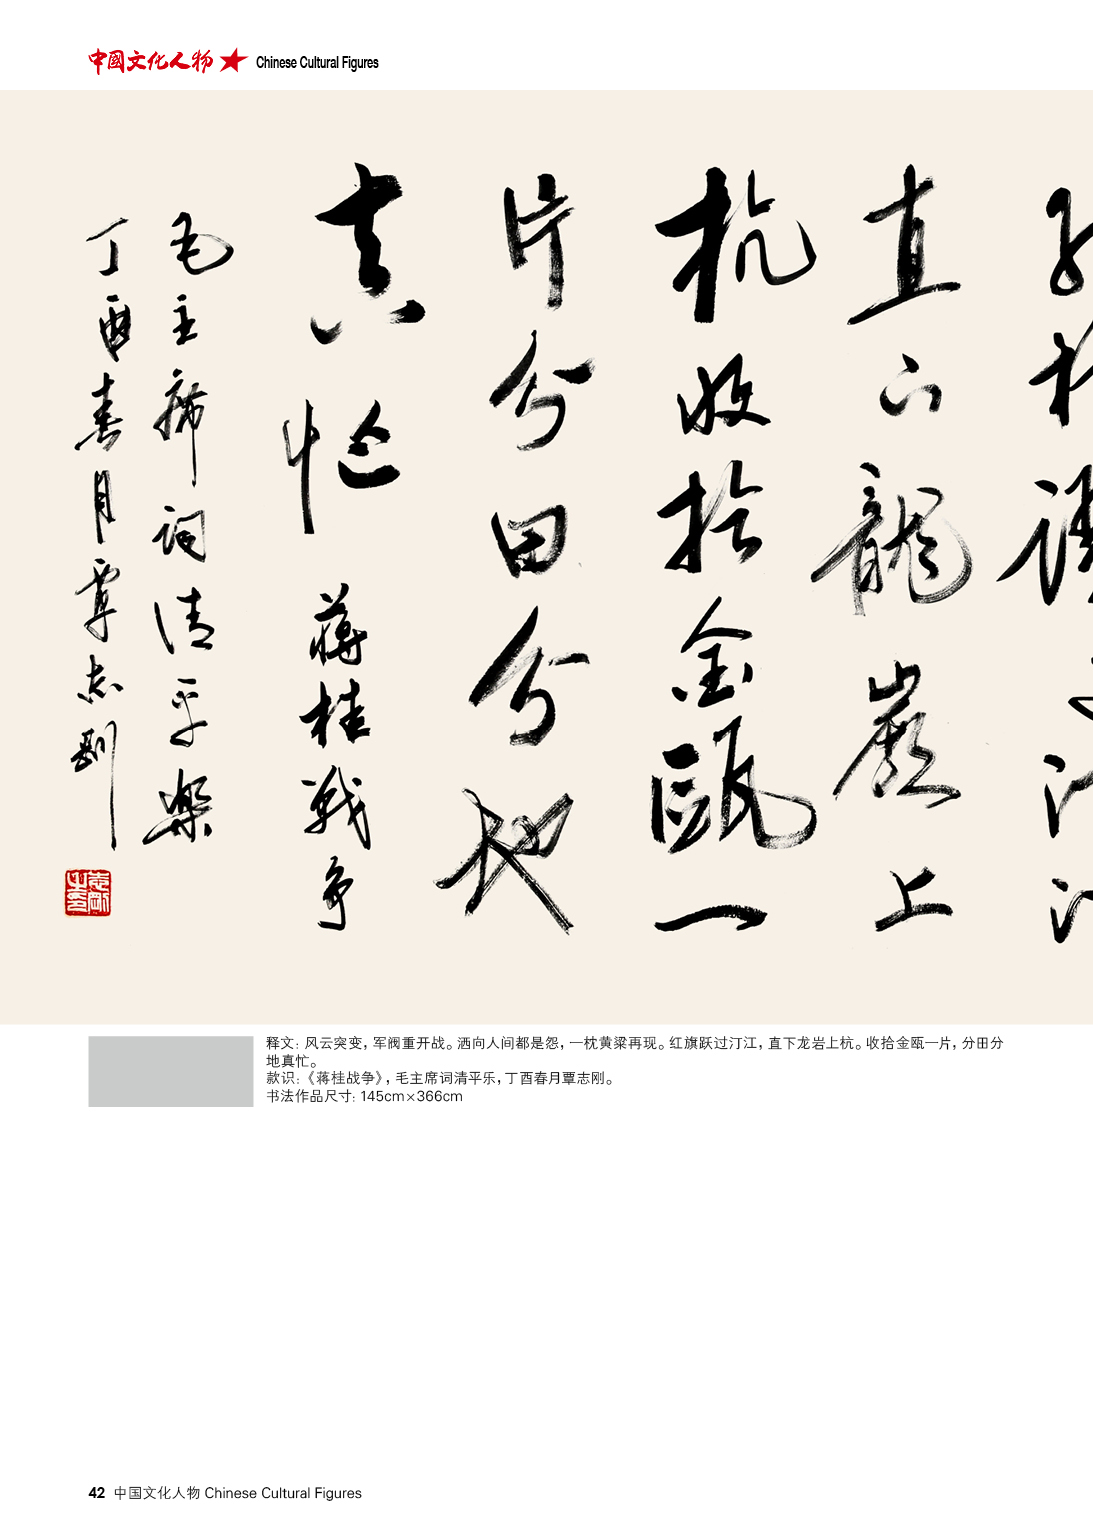 中國文化人物 Chinese Cultural Figures
直下龍巖上
杭收拾金甌一
片分田分地
真忙 蔣桂戰爭
毛主席詞清平樂
丁酉春月覃志剛
释文：风云突变，军阀重开战。洒向人间都是怨，一枕黄粱再现。红旗跃过汀江，直下龙岩上杭。收拾金瓯一片，分田分
地真忙。
款识：《蒋桂战争》，毛主席词清平乐，丁酉春月覃志刚。
书法作品尺寸：145cm×366cm
42 中国文化人物 Chinese Cultural Figures